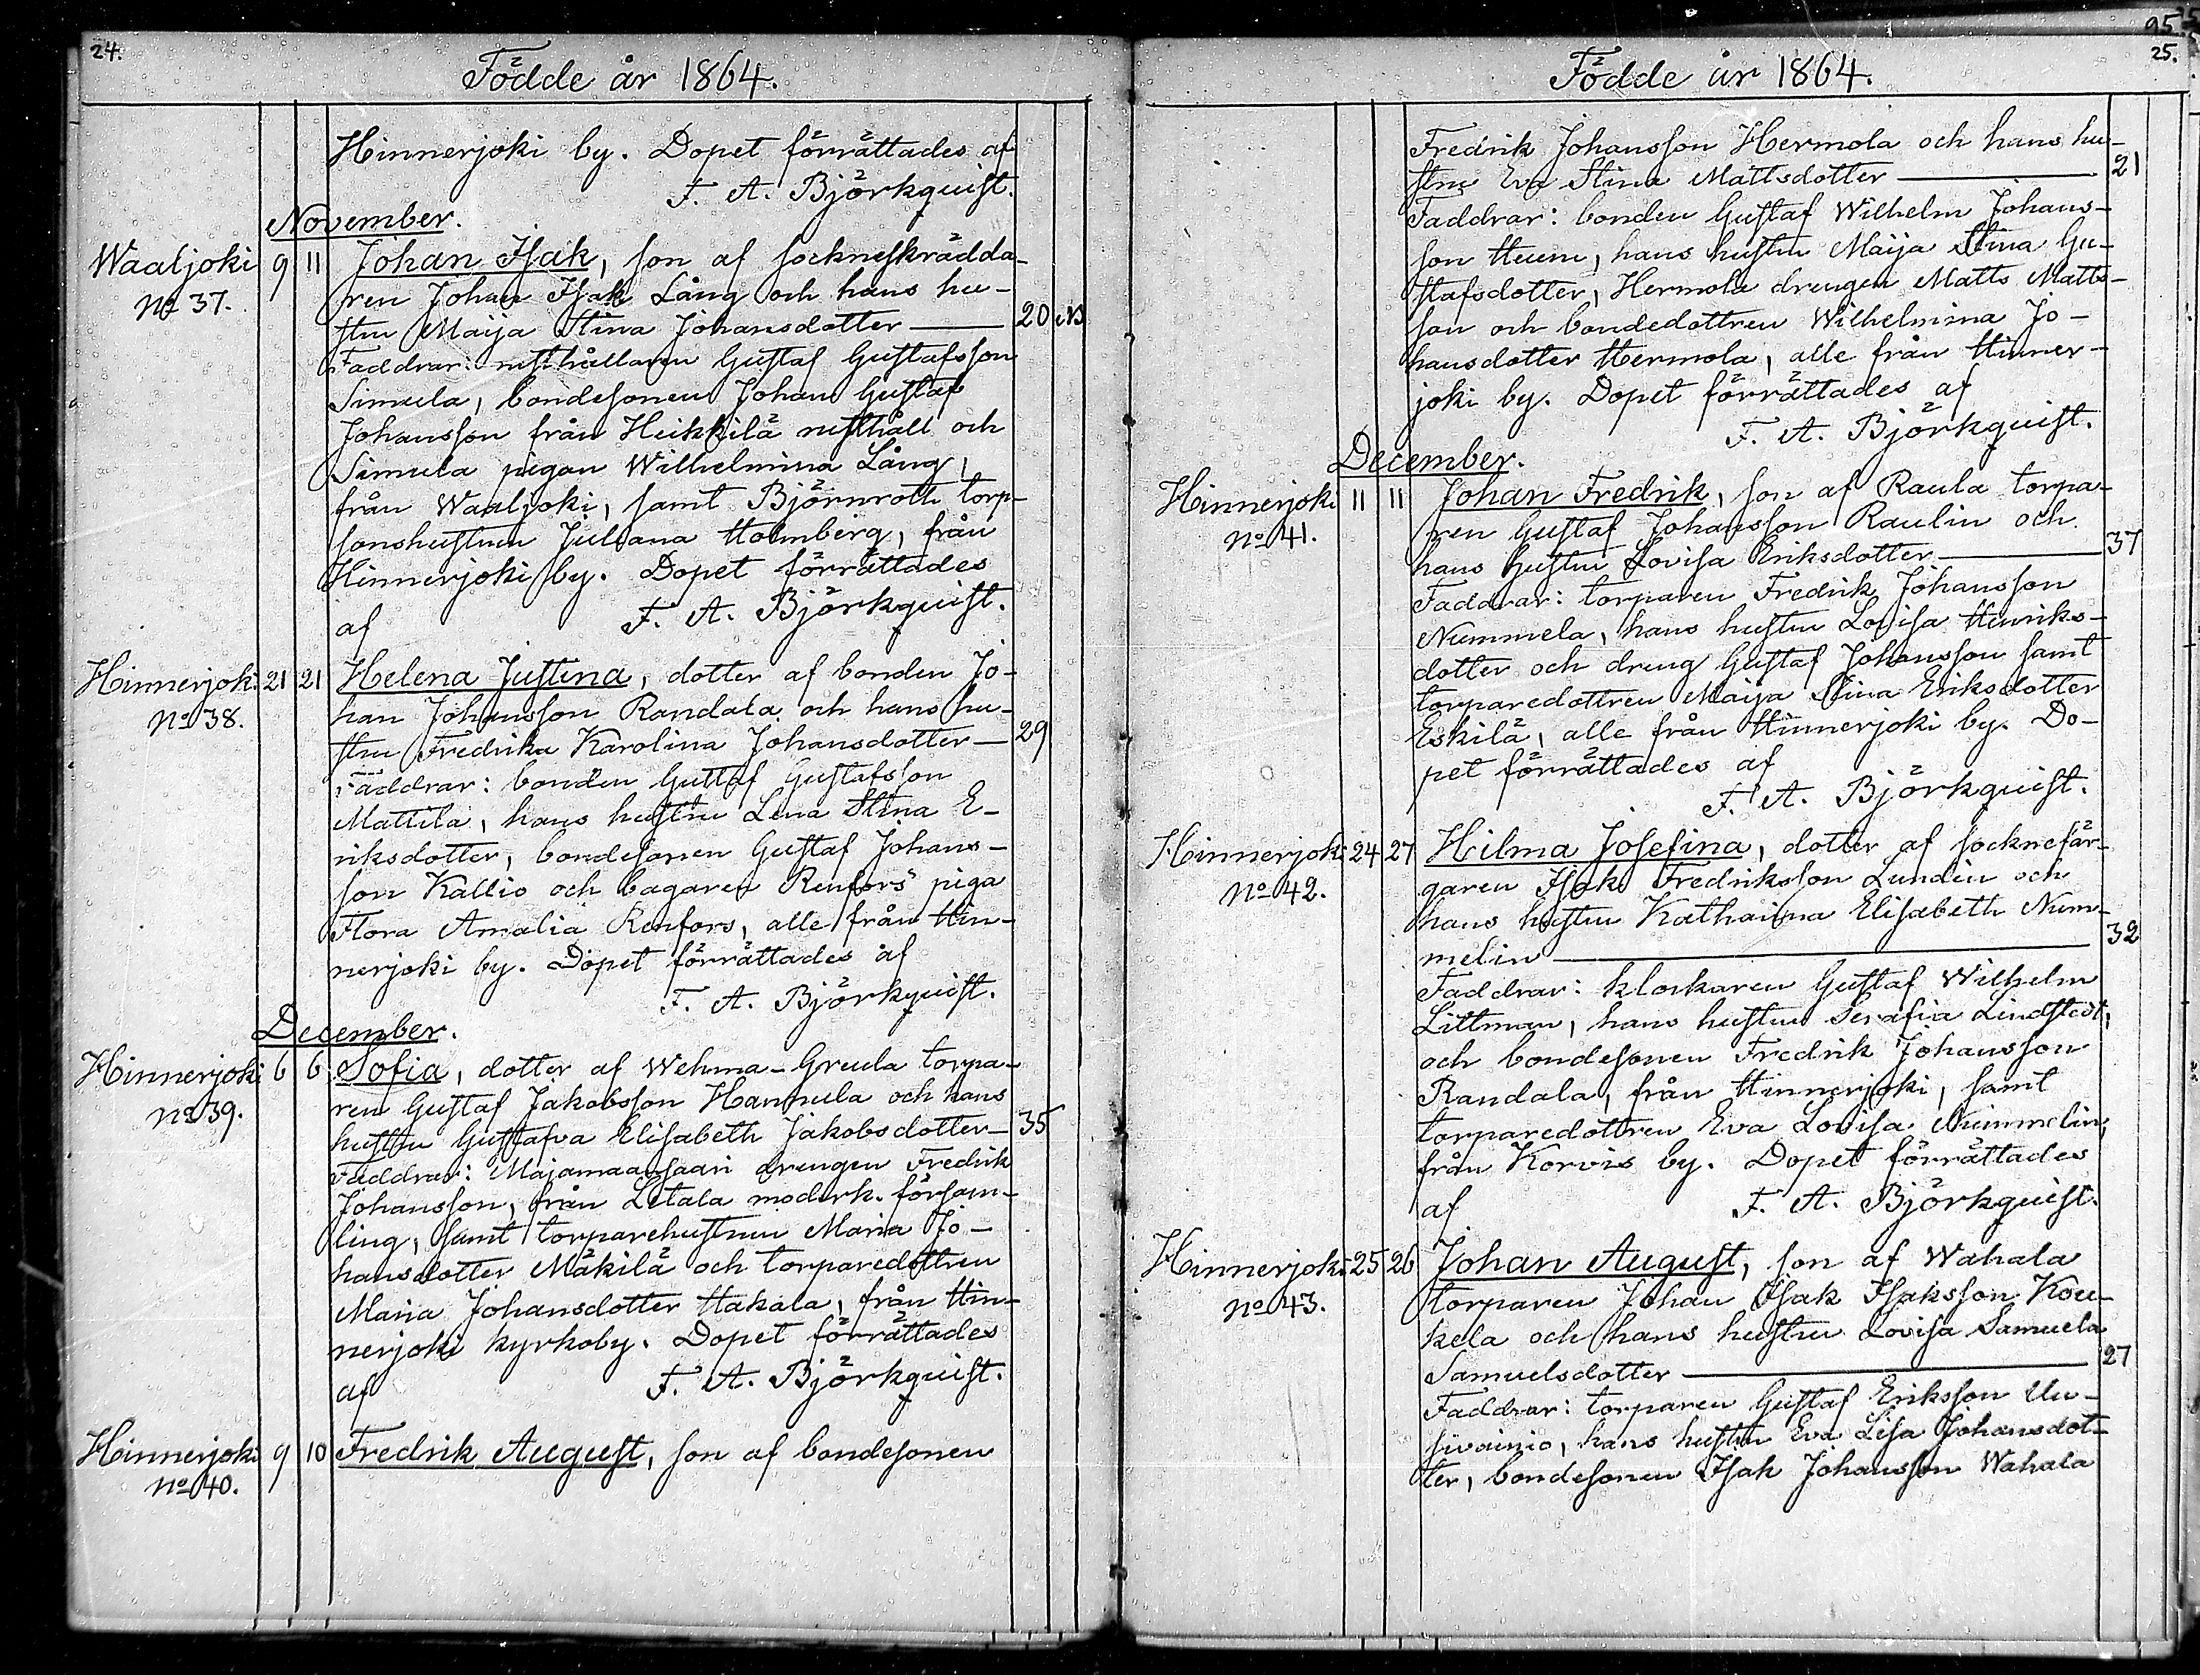 24.
Födde år 1864.
Hinnerjoki by. Dopet förrättades af
F. A. Björkquist.
November.
Waaljoki 9 11 Johan Isak, son af sockneskrädda-
No 37. ren Johan Isak Lång och hans hu-
stru Maija Stina Johansdotter — 20
Faddrar: rusthållaren Gustaf Gustafsson
Simula, bondesonen Johan Gustaf
Johansson från Heikkilä rusthåll och
Simula pigan Wilhelmina Lång,
från Waaljoki, samt Björnroth torp-
sonshustrun Juliana Holmberg, från
Hinnerjoki by. Dopet förrättades
af F. A. Björkquist.
Hinnerjoki 21 21 Helena Justina, dotter af bonden Jo-
No 38. han Johansson Randala och hans hu-
stru Fredrika Karolina Johansdotter — 29
Faddrar: bonden Gustaf Gustafsson
Mattila, hans hustru Lena Stina E-
riksdotter, bondesonen Gustaf Johans-
son Kallio och bagaren Renfors' piga
Flora Amalia Renfors, alle från Hin-
nerjoki by. Dopet förrättades af
F. A. Björkquist.
December.
Hinnerjoki 6 6 Sofia, dotter af Wehma-Greula torpa-
No 39. ren Gustaf Jakobsson Hannula och hans
hustru Gustafva Elisabeth Jakobsdotter — 35
Faddrar: Majamaansaari drengen Fredrik
Johansson, från Letala moderk. försam-
ling, samt torparehustrun Maria Jo-
hansdotter Mäkilä och torparedottren
Maria Johansdotter Hakala, från Hin-
nerjoki kyrkoby. Dopet förrättades
af F. A. Björkquist.
Hinnerjoki 9 10 Fredrik August, son af bondesonen
No 40.
95
25.
Födde år 1864.
Fredrik Johansson Hermola och hans hu-
stru Eva Stina Mattsdotter — 21
Faddrar: bonden Gustaf Wilhelm Johans-
son, hans hustru Maija Stina Gu-
stafsdotter, Hermola drengen Matts Matts-
son och bondedottren Wilhelmina Jo-
hansdotter Hermola, alle från Hinner-
joki by. Dopet förrättades af
F. A. Björkquist.
December.
Hinnerjoki 11 11 Johan Fredrik, son af Raula torpa-
No 41. ren Gustaf Johansson Raulin och
hans hustru Lovisa Eriksdotter — 37
Faddrar: torparen Fredrik Johansson
Nummela, hans hustru Lovisa Henriks-
dotter och dreng Gustaf Johansson samt
torparedottren Maija Stina Eriksdotter
Eskilä, alle från Hinnerjoki by. Do-
pet förrättades af
F. A. Björkquist.
Hinnerjoki 24 27 Hilma Josefina, dotter af socknefär-
No 42. garen Isak Fredriksson Lundin och
hans hustru Kathaina Elisabeth Num-
melin — 32
Faddrar: klockaren Gustaf Wilhelm
Littman, hans hustru Serafia Lindstedt,
och bondesonen Fredrik Johansson
Randala, från Hinnerjoki, samt
torparedottren Eva Lovisa Nummelin,
från Korvis by. Dopet förrättades
af F. A. Björkquist.
Hinnerjoki 25 26 Johan August, son af Wahala
No 43. torparen Johan Isak Isaksson Kou-
kela och hans hustru Lovisa Samuela
Samuelsdotter — 27
Faddrar: torparen Gustaf Eriksson Uu-
sivainio, hans hustru Eva Lisa Johansdot-
ter, bondesonen Isak Johansson Wahala